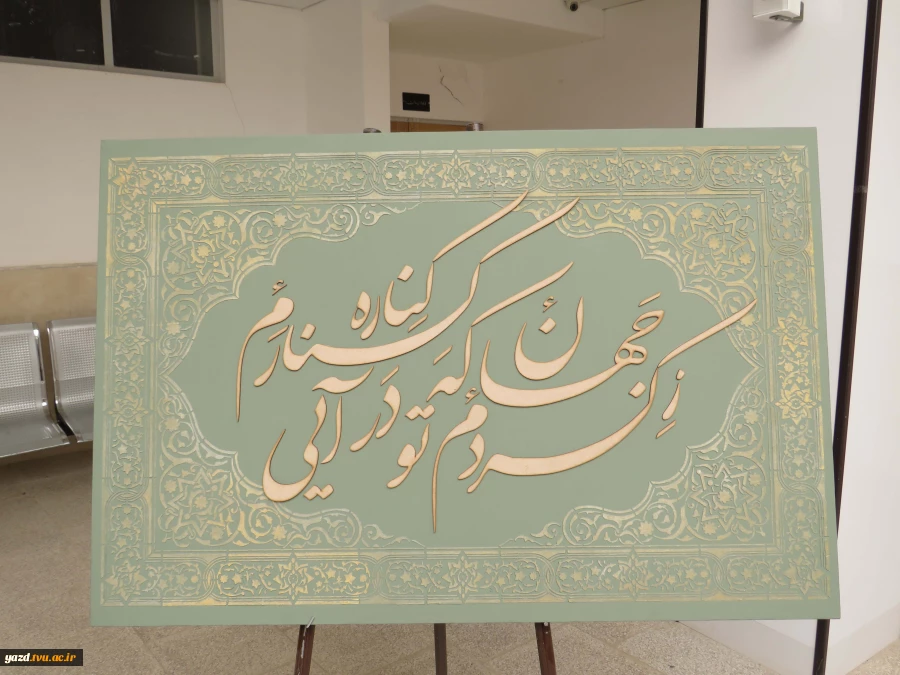 ز جهان کناره کردم که تو در کنارم آیی
yazd.tvu.ac.ir